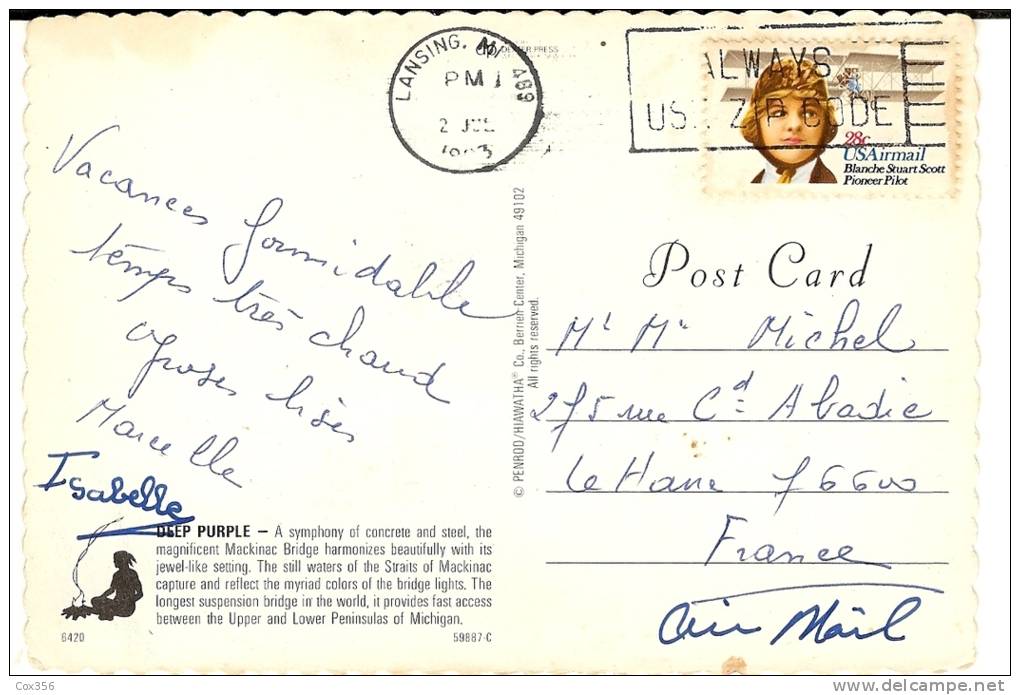 LANSING, MI 489
PM
2 JUL
1983
DEXTER PRESS
ALWAYS
USE ZIP CODE
28c
USAirmail
Blanche Stuart Scott
Pioneer Pilot
Vacances formidable
temps très chaud
grosses bises
Marcelle
Isabelle
DEEP PURPLE – A symphony of concrete and steel, the
magnificent Mackinac Bridge harmonizes beautifully with its
jewel-like setting. The still waters of the Straits of Mackinac
capture and reflect the myriad colors of the bridge lights. The
longest suspension bridge in the world, it provides fast access
between the Upper and Lower Peninsulas of Michigan.
6420
59887-C
© PENROD/HIAWATHA® Co., Berrien Center, Michigan 49102
All rights reserved.
Post Card
Mr Me Michel
275 rue Cd Abadie
Le Havre 76600
France
Air Mail
Cox356
www.delcampe.net